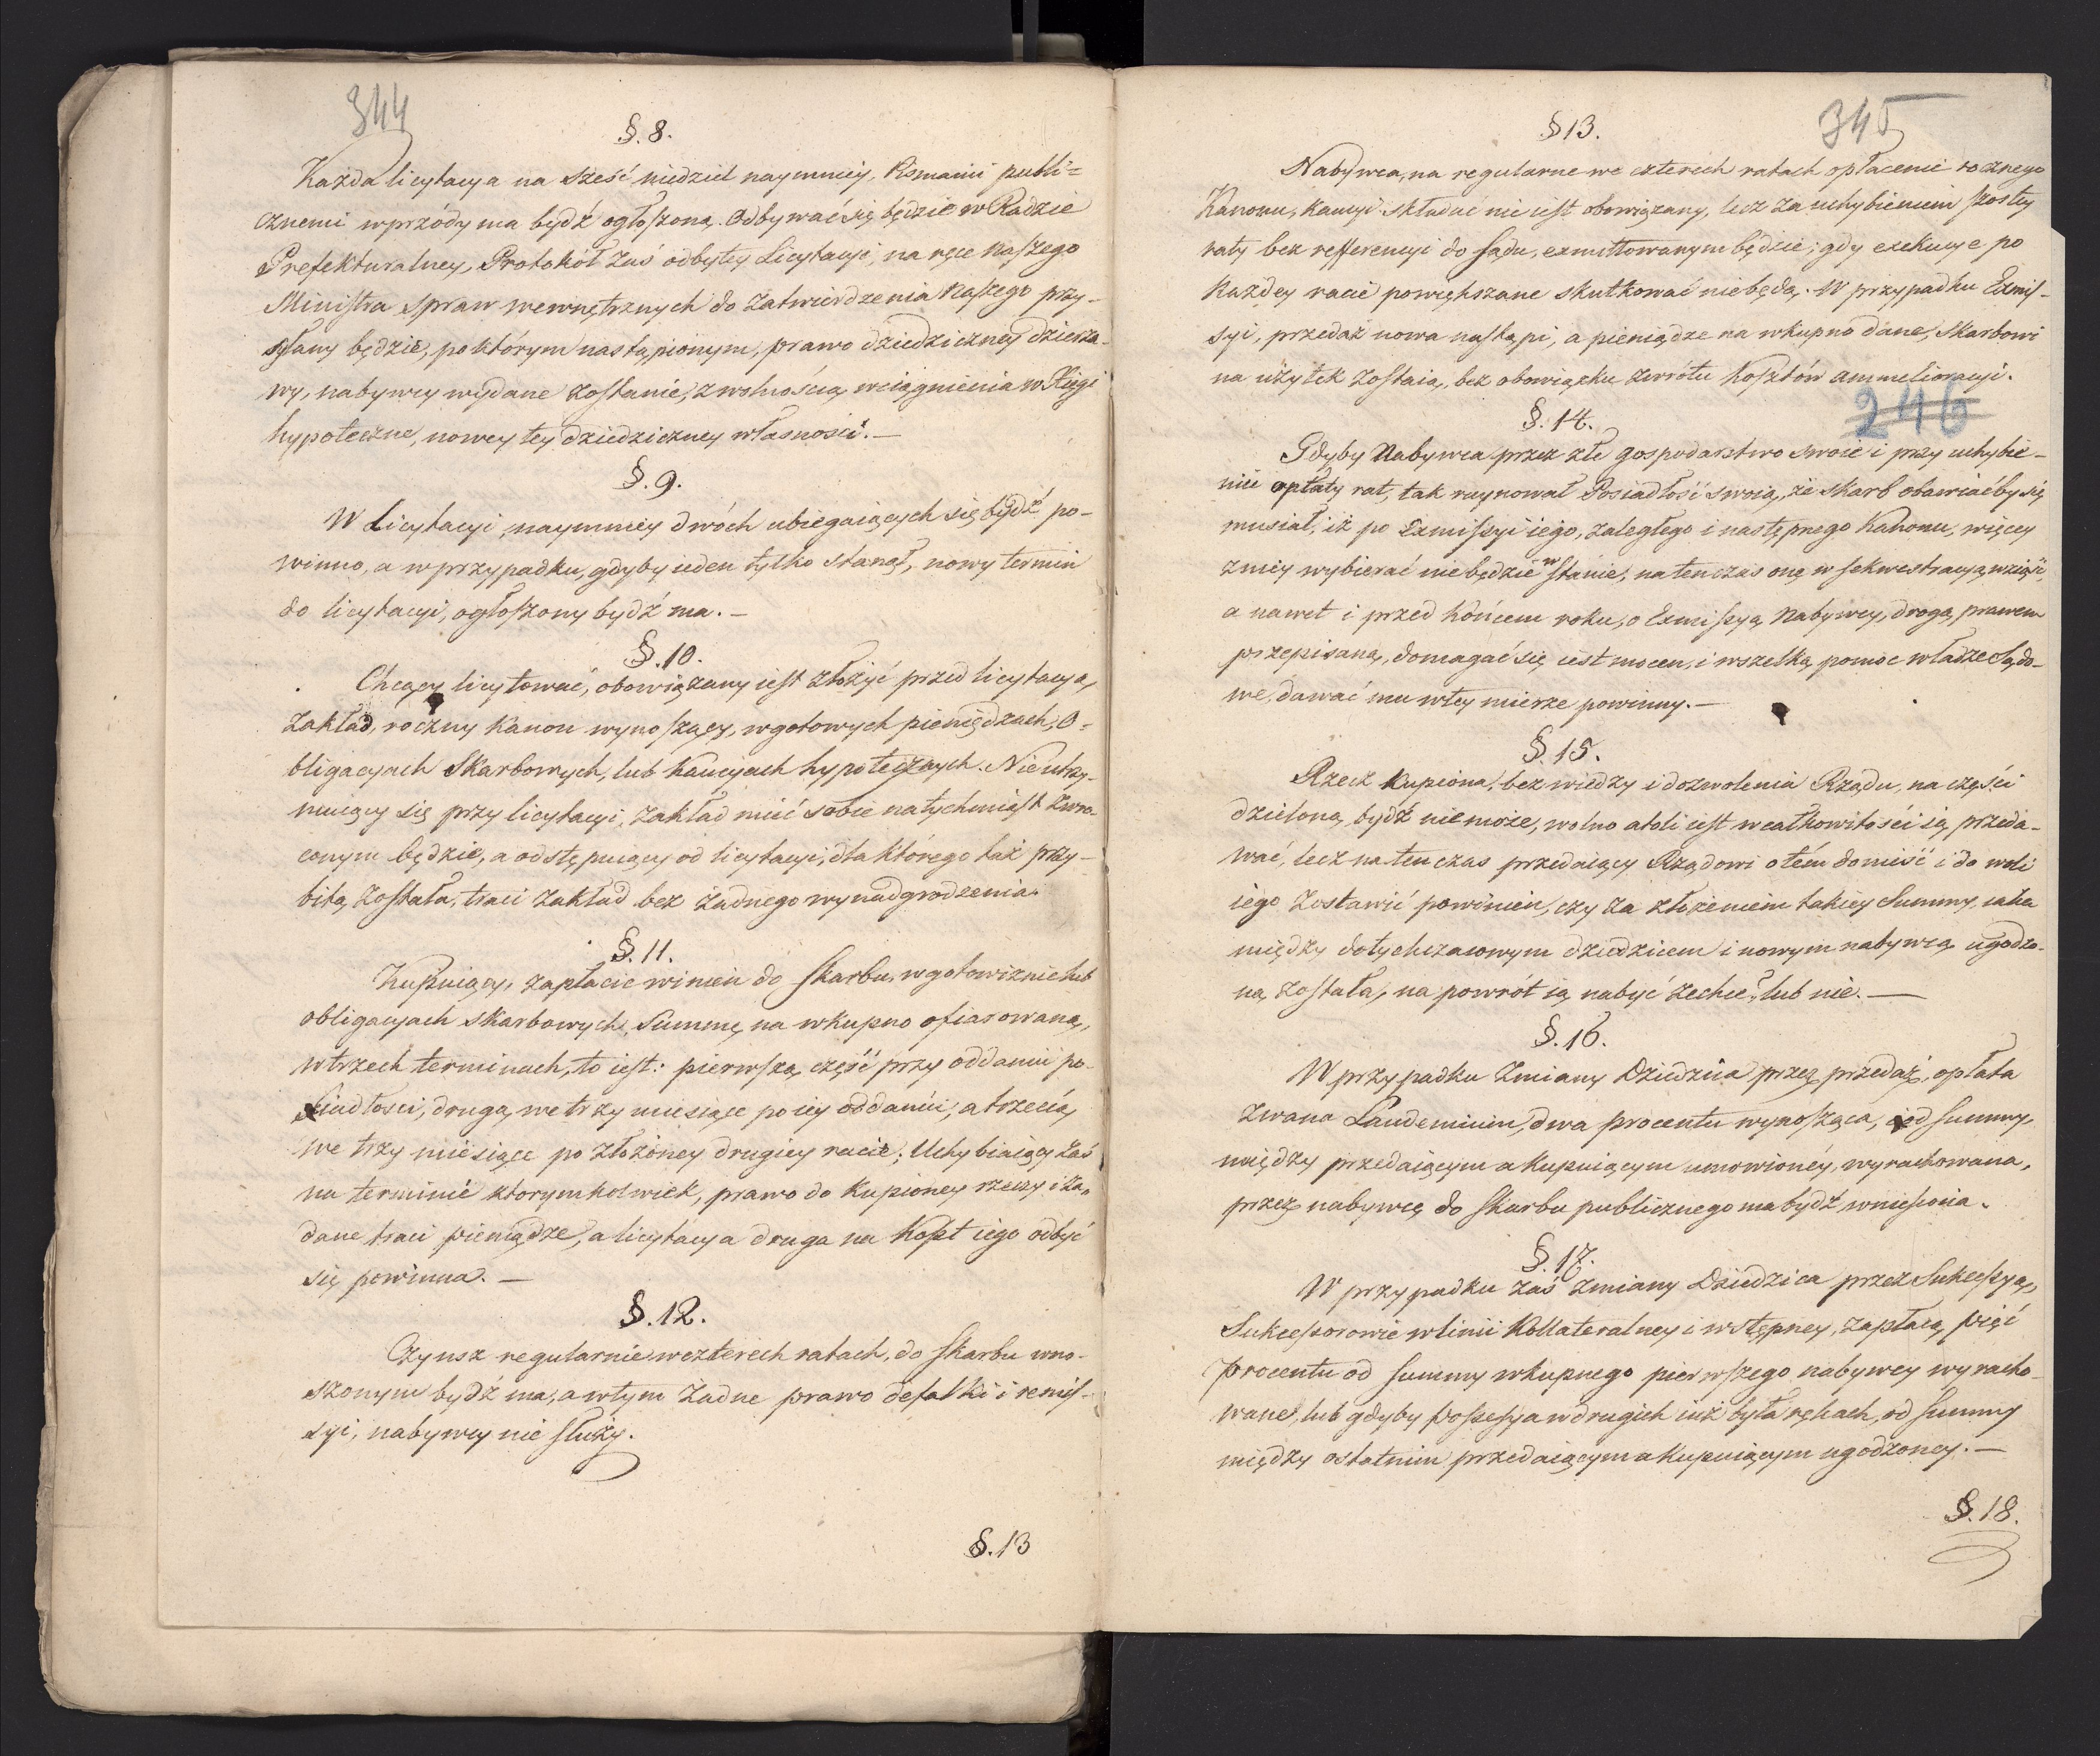 344
§. 8.
Każda licytacya na sześć niedziel naymniey, Pismami publi=
cznemi wprzódy ma bydź ogłoszoną. Odbywać się będzie w Radzie
Prefekturalney, Protokół zaś odbytey Licytacyi, na ręce naszego
Ministra spraw wewnętrznych do zatwierdzenia naszego przy-
słany będzie, po którym nastąpionym, prawo dziedziczney dzierza-
wy, nabywcy wydane zostanie, z wolnością wciągnienia w Xięgi
hypoteczne, nowey tey dziedziczney własności. —
§. 9.
W Licytacyi naymniey dwóch ubiegaiących się bydź po-
winno, a w przypadku, gdyby ieden tylko stanął, nowy termin
do licytacyi, ogłoszony bydź ma. —
§. 10.
Chcący licytować, obowiązany iest złożyć przed licytacyą,
zakład, roczny kanon wynoszący, w gotowych pieniędzach, O=
bligacyach Skarbowych, lub kaucyach hypotecznych. Nieutrzy-
muiący się przy licytacyi, zakład mieć sobie natychmiast zwró-
conym będzie, a odstępuiący od licytacyi, dla którego taż przy-
bitą została, traci zakład bez żadnego wynadgrodzenia.
§. 11.
Kupuiący, zapłacić winien do Skarbu, w gotowiznie lub
obligacyach skarbowych, Summę na wkupno ofiarowaną,
w trzech terminach, to iest: pierwszą część przy oddaniu po-
siadłości, drugą, we trzy miesiące po iey oddaniu, a trzecią,
we trzy miesiące po złożoney drugiey racie; Uchybiaiący zaś
na terminie ktorymkolwiek, prawo do kupioney rzeczy i za-
dane traci pieniądze, a licytacya druga na koszt iego odbyć
się powinna. —
§. 12.
Czynsz regularnie w czterech ratach, do Skarbu wno-
szonym bydź ma, a w tym żadne prawo defalki i remis-
syi, nabywcy nie służy.
§. 13
345
§ 13.
Nabywca, na regularne we czterech ratach opłacenie rocznego
Kanonu, kaucyi składać nie iest obowiązany, lecz za uchybieniem szostey
raty bez refferencyi do Sądu, exmittowanym będzie; gdy exekucye po
każdey racie powiększane skutkować nie będą. W przypadku Exmis-
syi, przedaż nowa nastąpi, a pieniądze na wkupno dane, Skarbowi
na użytek zostaią, bez obowiązku zwrótu kosztów ammelioracyi.
246
§. 14.
Gdyby Nabywca przez złe gospodarstwo swoie i przy uchybie-
niu opłaty rat, tak ruynował Posiadłość swoią, że skarb obawiać by się
musiał, iż po Exmissyi iego, zaległego i następnego Kanonu, więcey
z niey wybierać nie będzie w stanie, na ten czas onę w sekwestracyą wziąść,
a nawet i przed końcem roku, o Exmissyą Nabywcy, drogą prawem
przepisaną, domagać się iest mocen, i wszelką pomoc władze Sądo-
we, dawać mu w tey mierze powinny. —
§. 15.
Rzecz kupiona, bez wiedzy i dozwolenia Rządu, na części
dzieloną bydź nie może, wolno atoli iest w całkowitości ią przeda-
wać, lecz na ten czas przedaiący Rządowi o tém donieść i do woli
iego zostawić powinien, czy za złożeniem takiey Summy, iaka
między dotychczasowym dziedzicem i nowym nabywcą ugodzo-
ną została, na powrót ią nabyć zechce, lub nie. —
§. 16.
W przypadku zmiany Dziedzica przez przedaż, opłata
zwana Laudemium, dwa procentu wynosząca, od Summy,
między przedaiącym a kupuiącym umowioney, wyrachowana,
przez nabywcę do Skarbu publicznego ma bydź wniesiona.
§. 17.
W przypadku zaś zmiany Dziedzica przez Sukcessyą,
Sukcessorowie w linii Kollateralney i wstępney, zapłacą pięć
procentu od Summy wkupnego pierwszego nabywcy wyracho-
wane, lub gdyby possessya w drugich iuż była rękach, od Summy
między ostatnim przedaiącym a kupuiącym ugodzoney. —
§. 18.